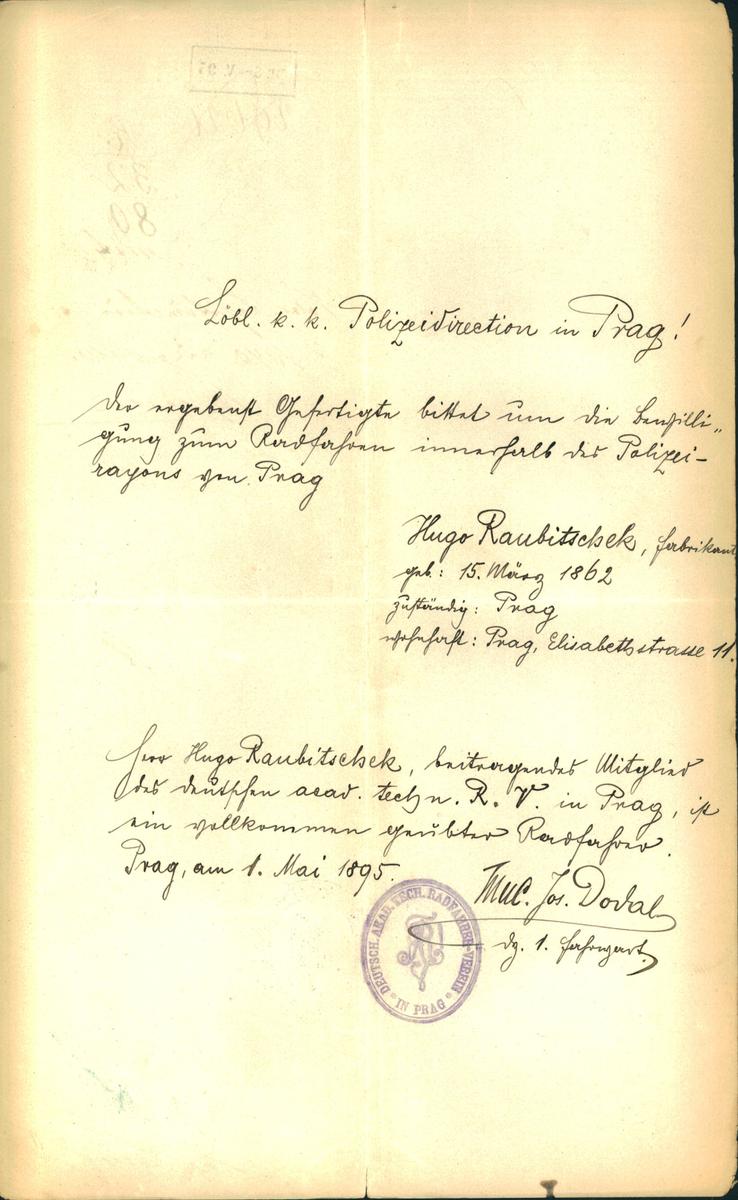 Löbl. k. k. Polizeidirection in Prag!
Der ergebenst Gefertigte bittet um die Bewilli„
gung zum Radfahren innerhalb des Polizei-
rayons von Prag
Hugo Raubitschek, Fabrikant
geb: 15. März 1862
zuständig: Prag
wohnhaft: Prag, Elisabethstrasse 11.
Herr Hugo Raubitschek, beitragendes Mitglied
des deutschen acad. techn. R. V. in Prag, ist
ein vollkommen geübter Radfahrer.
Prag, am 1. Mai 1895.
MUC. Jos. Dodal
dz. 1. Fahrwart.
DEUTSCH. AKAD. TECH. RADFAHRER-VEREIN
* IN PRAG *